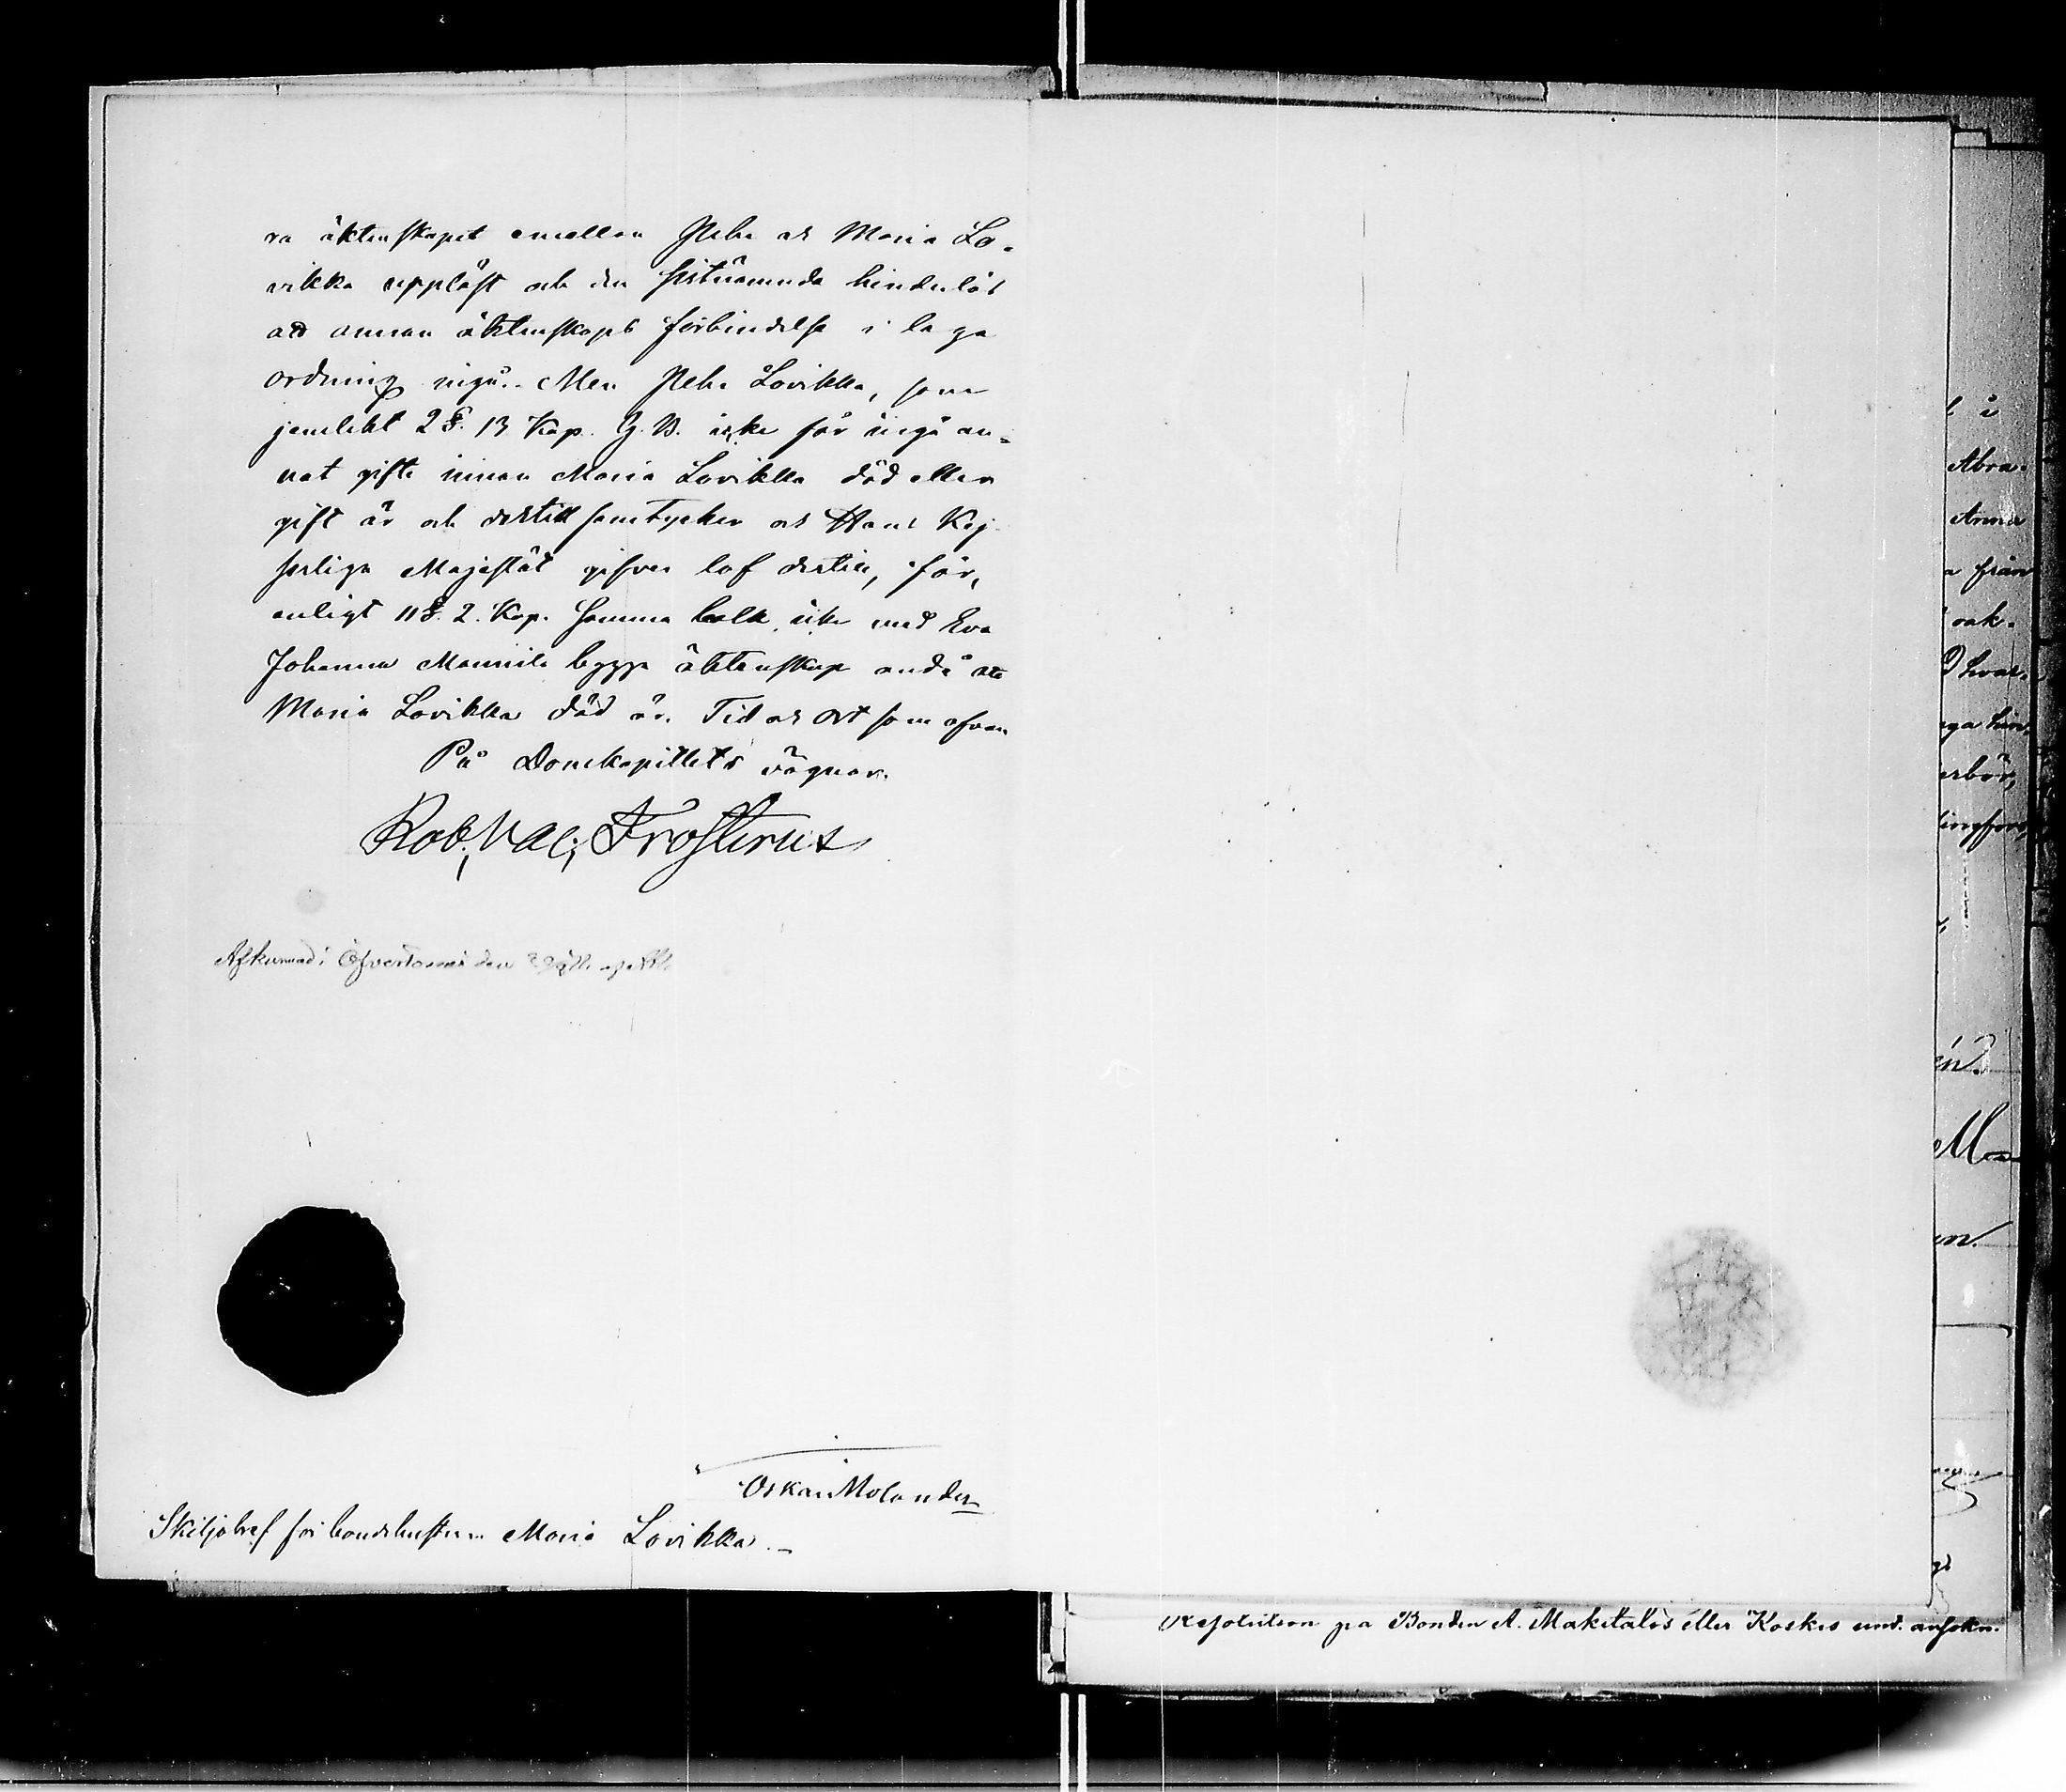 ra äktenskapet emellan Pehr och Maria Lo-
vikka upplöst och den sistnämnda hinderlös
att annan äktenskaps förbindelse i laga
ordning ingå. Men Pehr Lovikka, som
jemlikt 2 §. 13 Kap. G. B. icke får ingå an-
nat gifte innan Maria Lovikka död eller
gift är och dertill samtycker och Hans Kej-
serliga Majestät gifver lof dertill, får,
enligt 11 §. 2. Kap. samma balk icke med Eva
Johanna bygga äktenskap ändå att
Maria Lovikka död är. Tid och Ort som ofvan
På Domkapitlets vägnar.
Rob. Val. Frosterus
Afkunnad i Öfvertorneå den
Oskar Molander
Skiljobref för bondehustrun Maria Lovikka.
Resolution på Bonden A. Makitalos eller Koskos und. ansökn.
å
Abra-
Anna
a från
vak-
hvar-
ga hin-
erbör,
én.
M